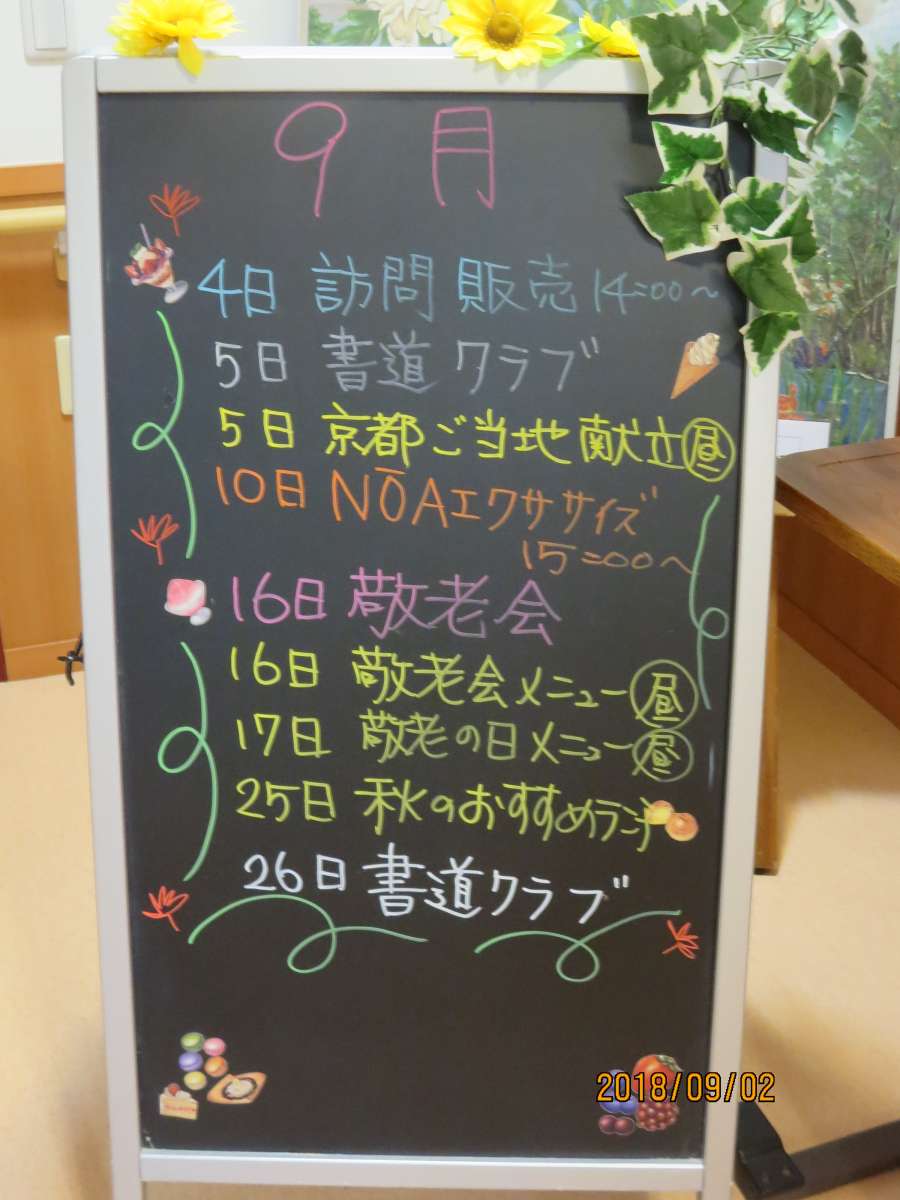 9月
4日 訪問販売 14:00～
5日 書道クラブ
5日 京都ご当地献立昼
10日 NŌAエクササイズ
15:00～
16日 敬老会
16日 敬老会メニュー昼
17日 敬老の日メニュー昼
25日 秋のおすすめランチ
26日 書道クラブ
2018/09/02